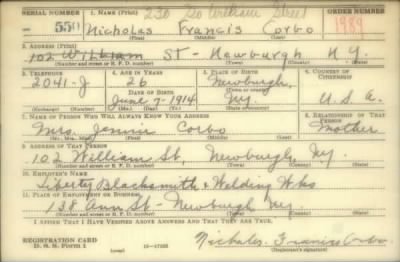 SERIAL NUMBER 1. NAME (Print) 230 William Street ORDER NUMBER
550 Nicholas Francis Corbo 1989
(First) (Middle) (Last)
2. ADDRESS (Print)
102 William ST - Newburgh N.Y.
(Number and street or R. F. D. number) (Town) (County) (State)
3. TELEPHONE 4. AGE IN YEARS 5. PLACE OF BIRTH 6. COUNTRY OF CITIZENSHIP
2041-J 26 Newburgh,
DATE OF BIRTH (Town or county)
June 7-1914 N.Y. U.S.A.
(Exchange) (Number) (Mo.) (Day) (Yr.) (State or country)
7. NAME OF PERSON WHO WILL ALWAYS KNOW YOUR ADDRESS 8. RELATIONSHIP OF THAT PERSON
Mrs. Jennie Corbo Mother
(Mr., Mrs., Miss) (First) (Middle) (Last)
9. ADDRESS OF THAT PERSON
102 William St, Newburgh, N.Y.
(Number and street or R. F. D. number) (Town) (County) (State)
10. EMPLOYER'S NAME
Liberty Blacksmith & Welding Wks
11. PLACE OF EMPLOYMENT OR BUSINESS
138 Ann St - Newburgh N.Y.
(Number and street or R. F. D. number) (Town) (County) (State)
I AFFIRM THAT I HAVE VERIFIED ABOVE ANSWERS AND THAT THEY ARE TRUE.
REGISTRATION CARD
D. S. S. Form 1 Nicholas Francis Corbo
(Registrant's signature)